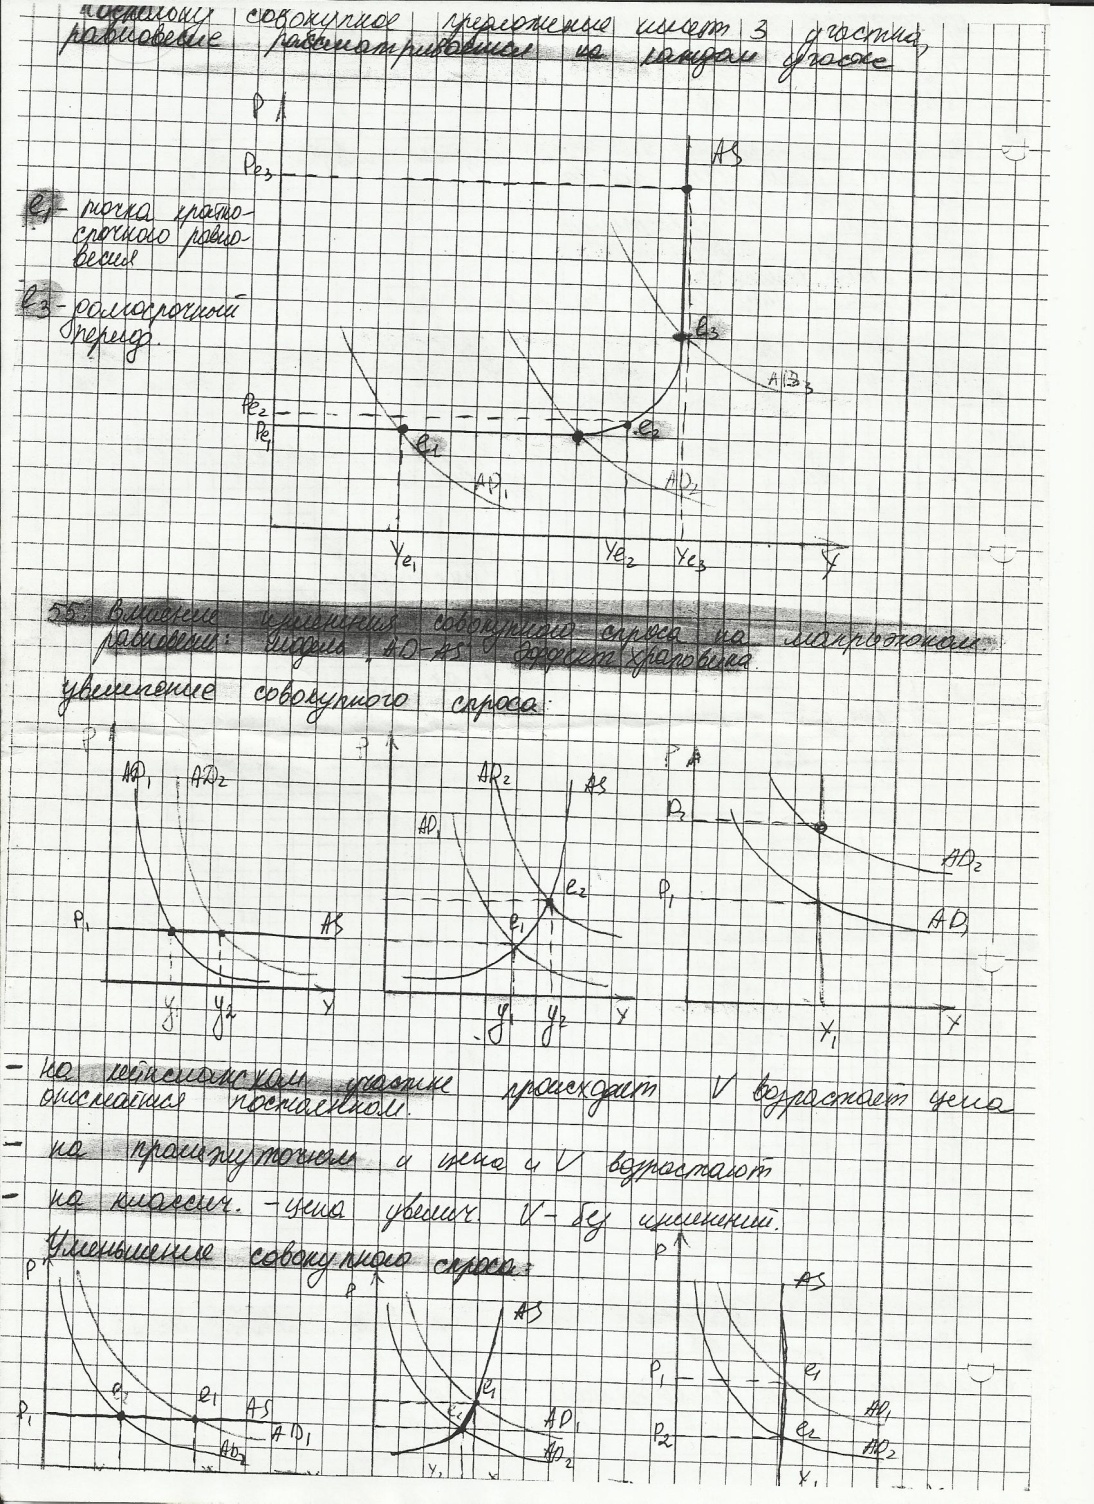 поскольку совокупное предложение имеет 3 участка,
равновесие рассматривается на каждом участке
P
AS
Pe3
e1 - точка кратко-
срочного равно-
весия
e3 - долгосрочный
период.
e3
AD3
Pe2
Pe1
e1
e2
AD1
AD2
Ye1
Ye2
Ye3
Y
55. Влияние изменения совокупного спроса на макроэконом.
равновесие: модель "AD-AS" эффект храповика.
увеличение совокупного спроса:
P
AD1
AD2
P1
AS
y1
y2
Y
P
AD2
AS
AD1
e2
e1
y1
y2
Y
P
P2
AD2
P1
AD1
Y1
Y
- на кейнсианском участке происходит V возрастает цена
остается постоянной.
- на промежуточном и цена и V возрастают
- на классич. - цена увелич. V - без изменений.
Уменьшение совокупного спроса:
P
e2
e1
P1
AS
AD1
AD2
P
AS
e1
e2
AD1
AD2
Y2
P
AS
P1
e1
AD1
P2
e2
AD2
Y1